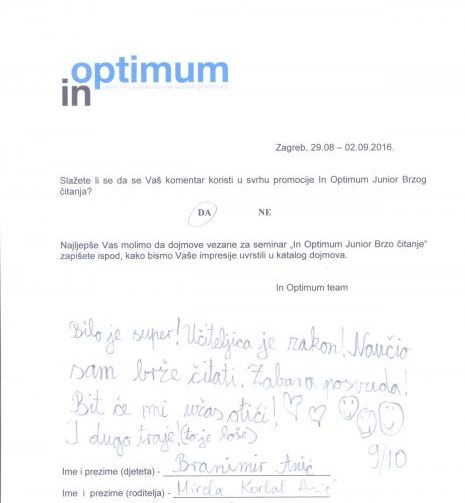 optimum
in
Zagreb, 29.08 – 02.09.2016.
Slažete li se da se Vaš komentar koristi u svrhu promocije In Optimum Junior Brzog
čitanja?
DA NE
Najljepše Vas molimo da dojmove vezane za seminar „In Optimum Junior Brzo čitanje“
zapišete ispod, kako bismo Vaše impresije uvrstili u katalog dojmova.
In Optimum team
Bilo je super! Učiteljica je zakon! Naučio
sam brže čitati. Zabava posvuda!
Bit će mi užas otići!
I dugo traje! (to je loše)
9/10
Ime i prezime (djeteta) - Branimir Anić
Ime i prezime (roditelja) - Mirela Anić